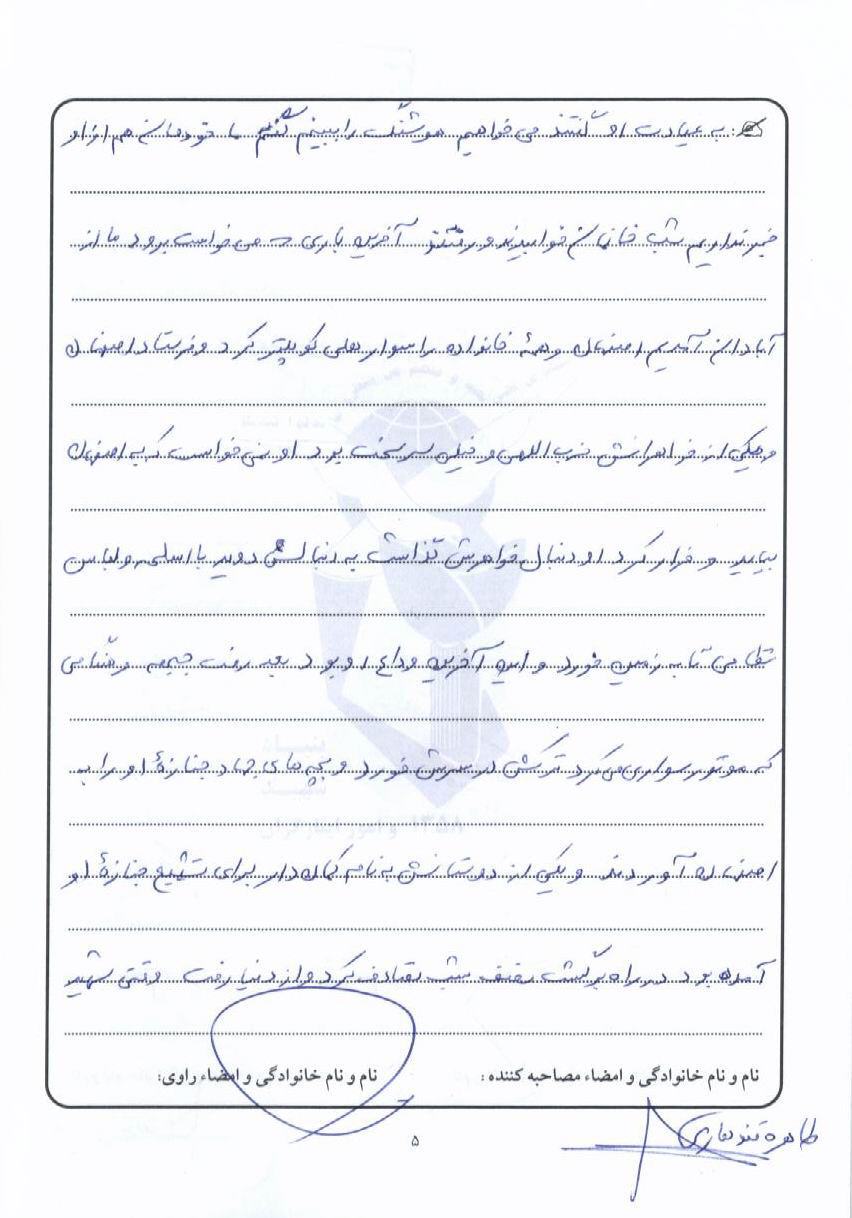 ج: به عیادت او گفتند می خواهیم هوشنگ را ببینیم گفتیم ما خودمان هم از او
خبر نداریم شب خانمان خوابیدند و رفتند آخرین باری که می خواست برود ما از
آبادان آمدیم اصفهان و همۀ خانواده را سوار هلی کوپتر کرد و فرستاد اصفهان
و یکی از خواهرانش حزب اللهی و خیلی سرسخت بود او نمی خواست که به اصفهان
بیاید و فرار کرد او دنبال خواهرش گذاشت به دنبالش دوید با اسلحه و لباس
نظامی تا به زمین خورد و این آخرین وداع او بود بعد رفت جبهه و هنگامی
که موتور سواری می کرد ترکش در سرش خورد و بچه های جهاد جنازۀ او را به
اصفهان آوردند و یکی از دوستانش به نام کماندار برای تشییع جنازۀ او
آمده بود در راه برگشت نصف شب تصادف کرد و از دنیا رفت وقتی شهید
نام و نام خانوادگی و امضاء مصاحبه کننده : نام و نام خانوادگی و امضاء راوی:
طاهره
۵
بنیاد
شهید
و امور ایثارگران ۱۳۵۸